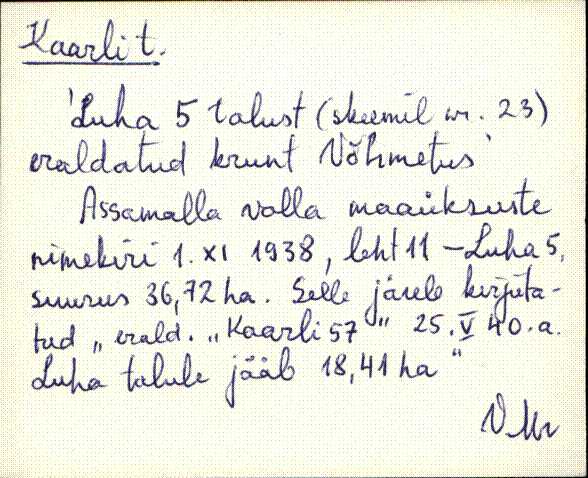 Kaarli t.
'Luha 5 talust (skeemil nr. 23)
eraldatud krunt Võhmetus'
Assamalla valla maaüksuste
nimekiri 1. XI 1938, leht 11 – Luha 5,
suurus 36,72 ha. Selle järele kirjuta-
tud „ erald. „Kaarli 57 " 25. V 40. a.
Luha talule jääb 18,41 ha "